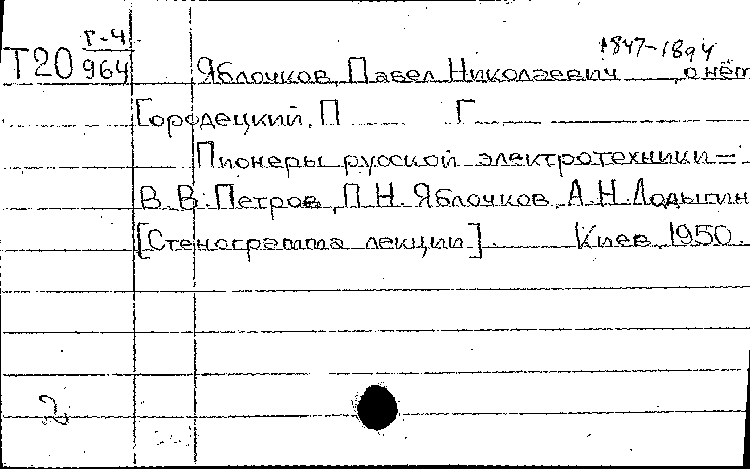 Г-4
1847-1894
Т20 964 Яблочков, Павел Николаевич, о нём
Городецкий, П Г
Пионеры русской электротехники –
В.В. Петров, П.Н. Яблочков, А.Н. Лодыгин
[Стенограмма лекции]. Киев, 1950.
2